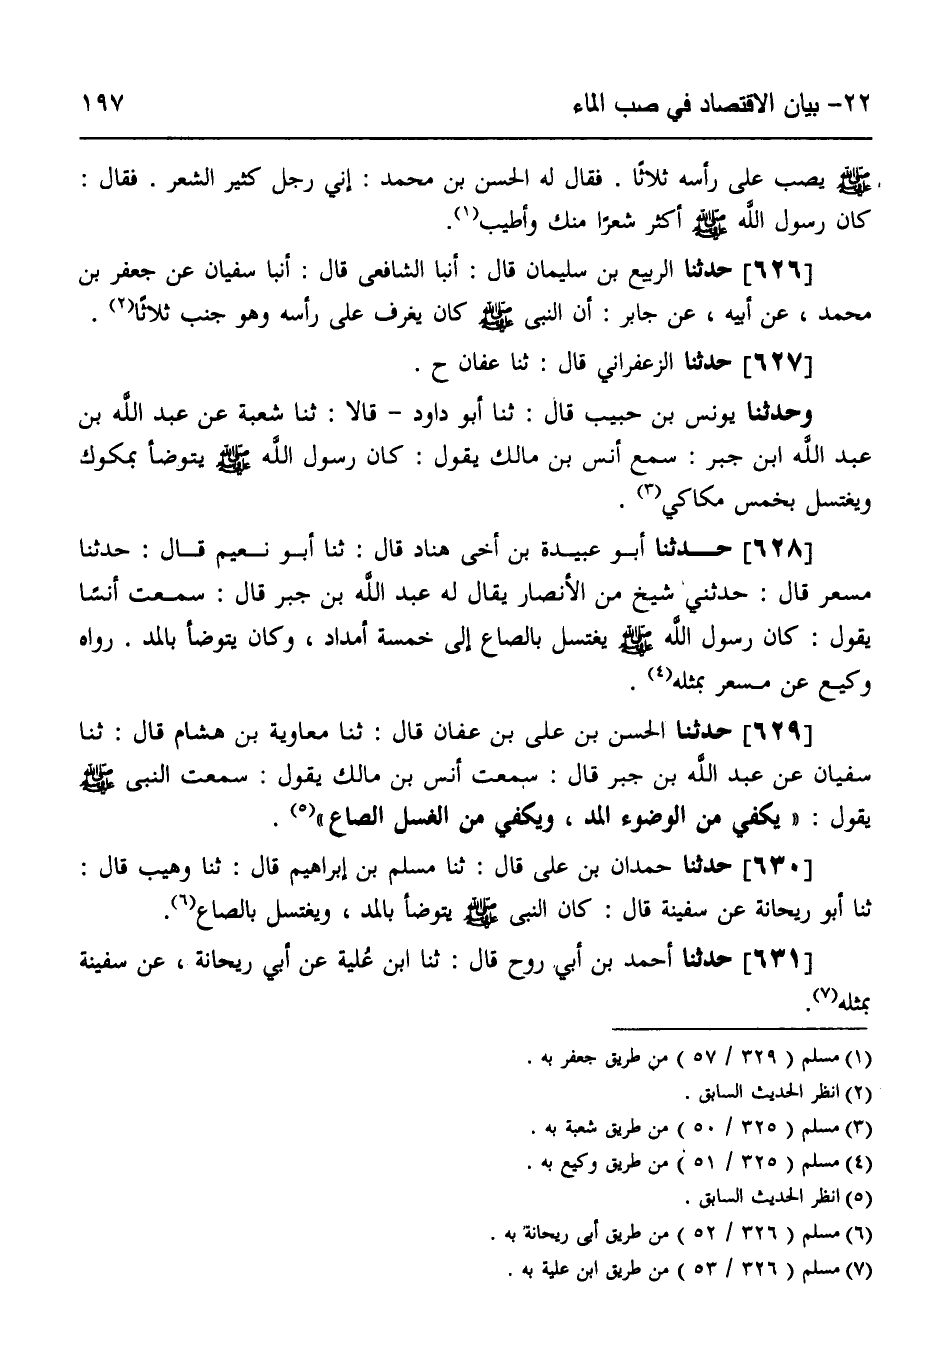 ٢٢- بيان الاقتصاد في صب الماء ١٩٧
ﷺ يصب على رأسه ثلاثًا . فقال له الحسن بن محمد : إني رجل كثير الشعر . فقال :
كان رسول اللَّه ﷺ أكثر شعرًا منك وأطيب(١).
[٦٢٦] حدثنا الربيع بن سليمان قال : أنبا الشافعى قال : أنبا سفيان عن جعفر بن
محمد ، عن أبيه ، عن جابر : أن النبى ﷺ كان يغرف على رأسه وهو جنب ثلاثًا(٢) .
[٦٢٧] حدثنا الزعفراني قال : ثنا عفان ح .
وحدثنا يونس بن حبيب قال : ثنا أبو داود - قالا : ثنا شعبة عن عبد اللَّه بن
عبد اللَّه ابن جبر : سمع أنس بن مالك يقول : كان رسول اللَّه ﷺ يتوضأ بمكوك
ويغتسل بخمس مكاكي(٣) .
[٦٢٨] حدثنا أبو عبيدة بن أخى هناد قال : ثنا أبو نعيم قال : حدثنا
مسعر قال : حدثني شيخ من الأنصار يقال له عبد اللَّه بن جبر قال : سمعت أنسًا
يقول : كان رسول اللَّه ﷺ يغتسل بالصاع إلى خمسة أمداد ، وكان يتوضأ بالمد . رواه
وكيع عن مسعر بمثله(٤) .
[٦٢٩] حدثنا الحسن بن على بن عفان قال : ثنا معاوية بن هشام قال : ثنا
سفيان عن عبد اللَّه بن جبر قال : سمعت أنس بن مالك يقول : سمعت النبى ﷺ
يقول : « يكفي من الوضوء المد ، ويكفي من الغسل الصاع »(٥) .
[٦٣٠] حدثنا حمدان بن على قال : ثنا مسلم بن إبراهيم قال : ثنا وهيب قال :
ثنا أبو ريحانة عن سفينة قال : كان النبى ﷺ يتوضأ بالمد ، ويغتسل بالصاع(٦).
[٦٣١] حدثنا أحمد بن أبي روح قال : ثنا ابن عُلية عن أبي ريحانة ، عن سفينة
بمثله(٧).
(١) مسلم ( ٣٢٩ / ٥٧ ) من طريق جعفر به .
(٢) انظر الحديث السابق .
(٣) مسلم ( ٣٢٥ / ٥٠ ) من طريق شعبة به .
(٤) مسلم ( ٣٢٥ / ٥١ ) من طريق وكيع به .
(٥) انظر الحديث السابق .
(٦) مسلم ( ٣٢٦ / ٥٢ ) من طريق أبى ريحانة به .
(٧) مسلم ( ٣٢٦ / ٥٣ ) من طريق ابن علية به .